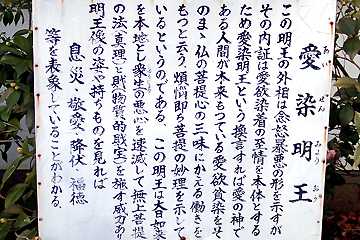 愛染明王
あいぜんみょうおう
この明王の外相は忿怒暴悪の形を示すが
その内証は愛欲染着の至情を本体とする
ため愛染明王という換言すれば愛の神で
ある人間が本来もっている愛欲貪染をそ
のまゝ仏の菩提心の三昧にかえる働きを
もつと云う。煩悩即ち菩提の妙理を示して
いるというのである。この明王は大日如来
を本地とし衆生の悪心を速滅して無上菩提
の法(真理)と財(物質的財宝)を施す威力あり
明王像の姿や持ちものを見れば
息災・敬愛・降伏・福徳
等を表象していることがわかる。